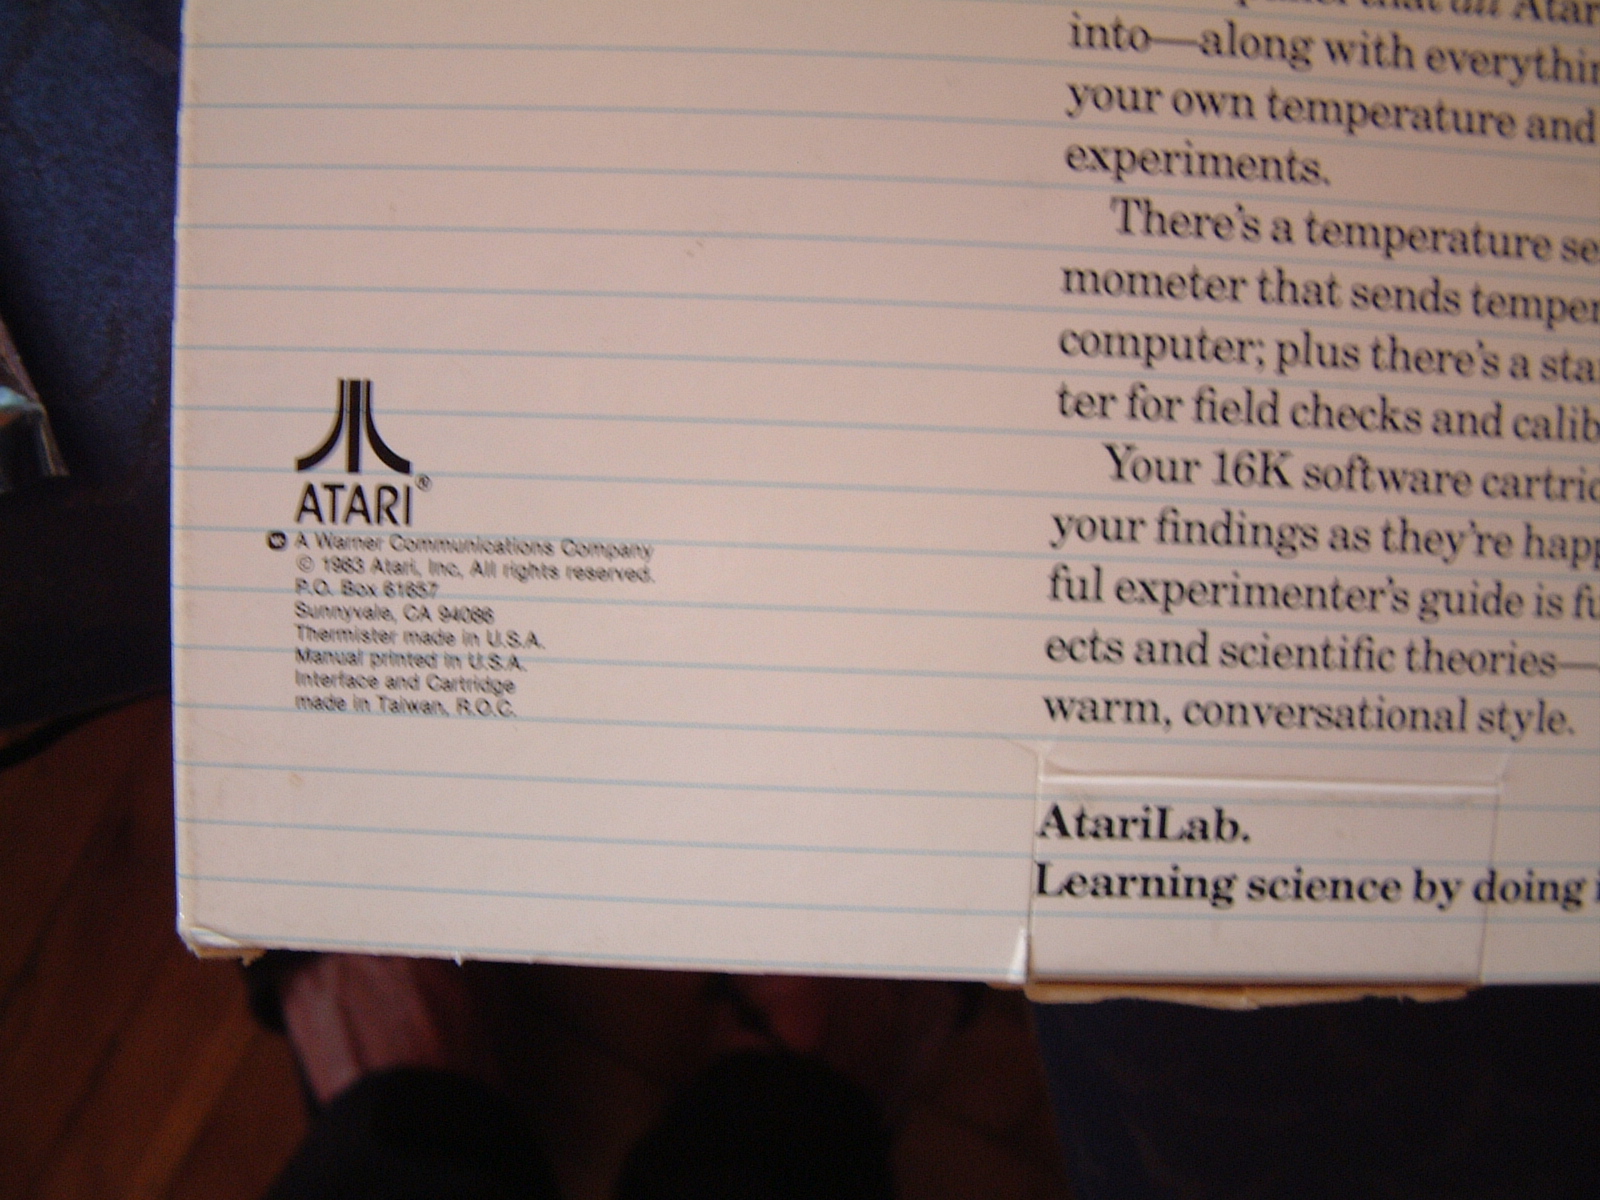 that all Atar
into—along with everythin
your own temperature and
experiments.
There's a temperature se
mometer that sends temper
computer; plus there's a sta
ter for field checks and calib
Your 16K software cartri
your findings as they're happ
ful experimenter's guide is fu
ects and scientific theories—
warm, conversational style.
AtariLab.
Learning science by doing i
ATARI®
A Warner Communications Company
© 1983 Atari, Inc. All rights reserved.
P.O. Box 61657
Sunnyvale, CA 94086
Thermister made in U.S.A.
Manual printed in U.S.A.
Interface and Cartridge
made in Taiwan, R.O.C.